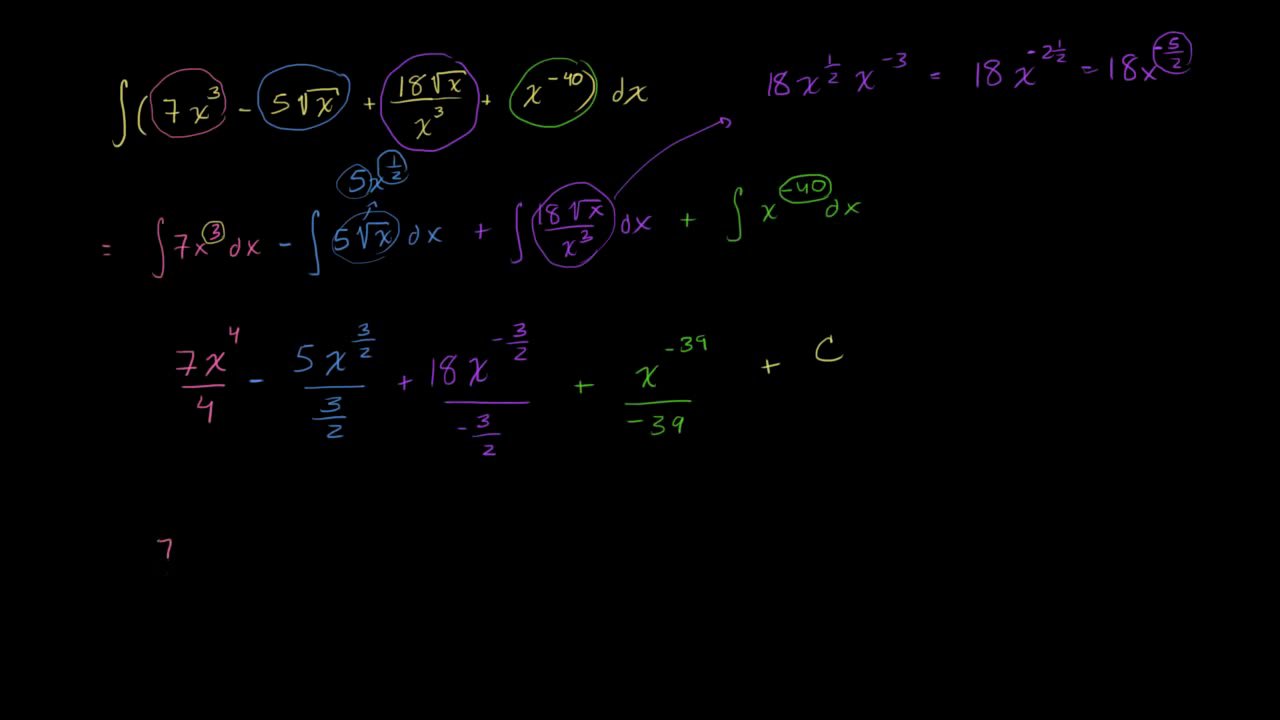 ∫(7x³ - 5√x + 18√x/x³ + x⁻⁴⁰) dx
18x^(1/2) x⁻³ = 18x^(-2 1/2) = 18x^(-5/2)
5x^(1/2)
= ∫7x³dx - ∫5√x dx + ∫18√x/x³ dx + ∫x⁻⁴⁰dx
7x⁴/4 - 5x^(3/2)/(3/2) + 18x^(-3/2)/(-3/2) + x⁻³⁹/-39 + C
7